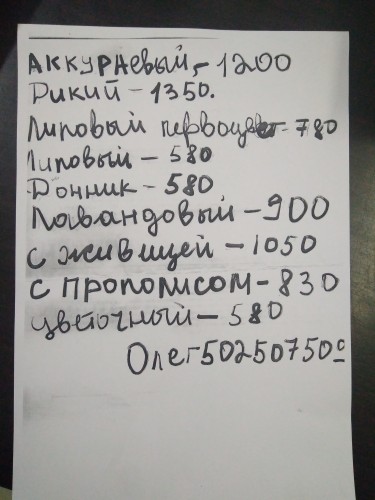 Аккураевый - 1200
Дикий - 1350.
Липовый первоцвет - 780
Липовый - 580
Донник - 580
Лавандовый - 900
с живицей - 1050
с прополисом - 830
цветочный - 580
Олег 50250750º